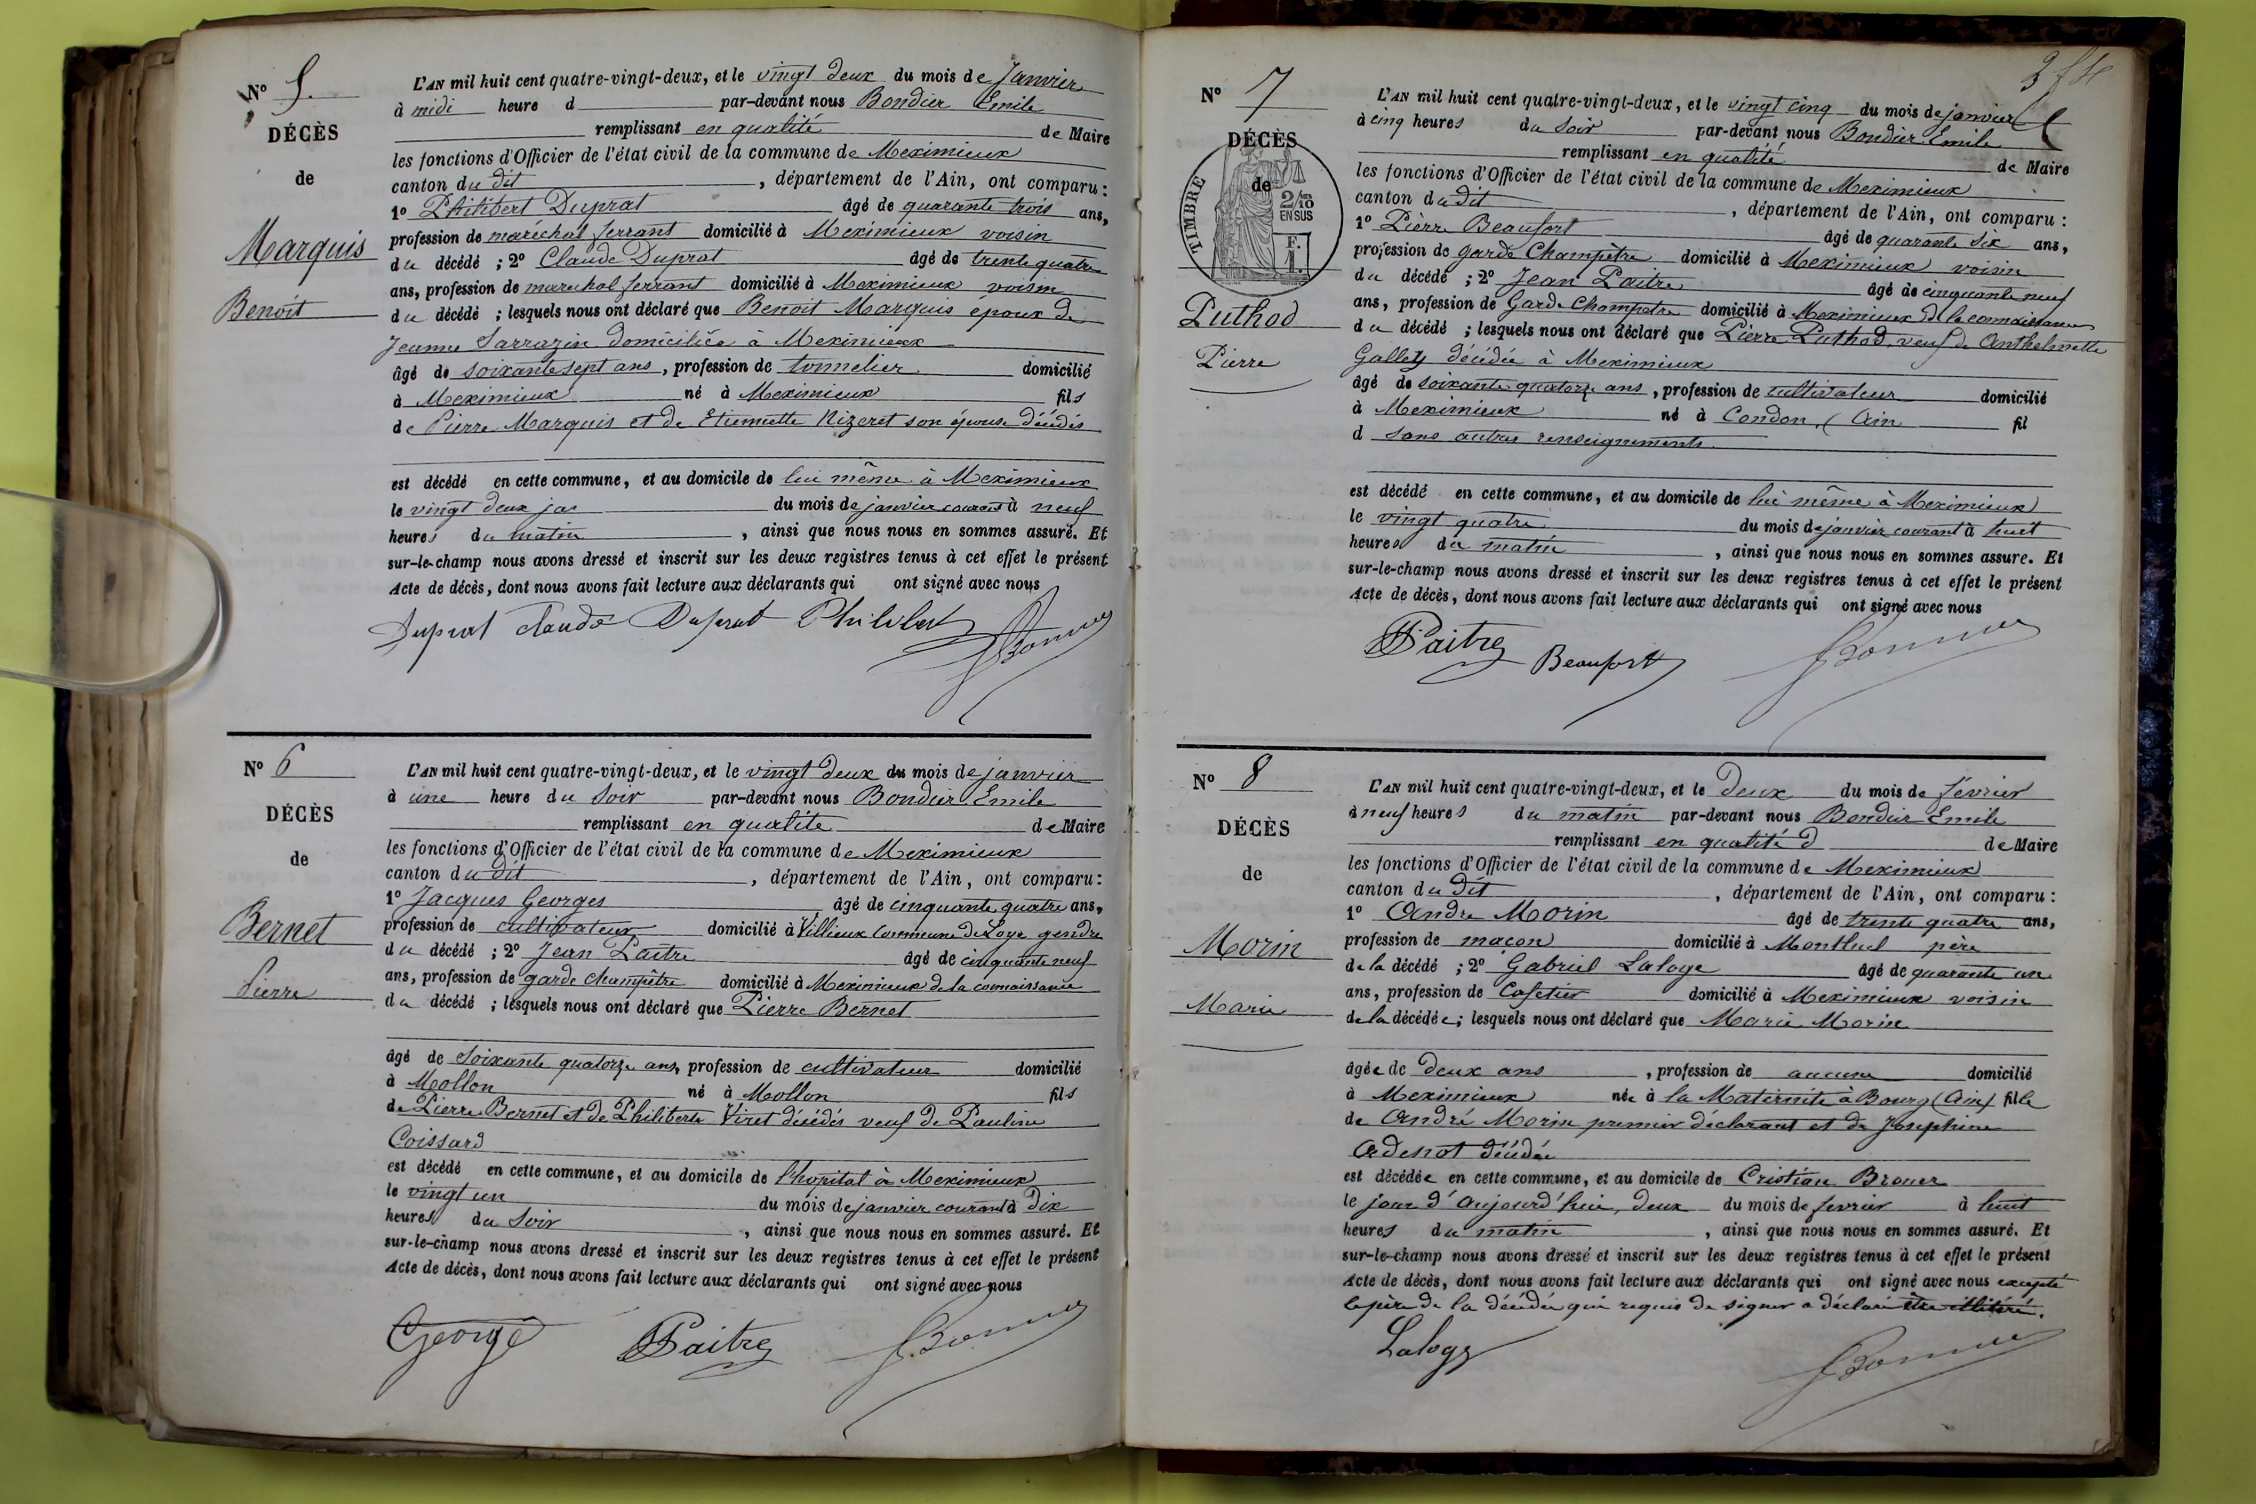 N° 5.
DÉCÈS
de
Marquis
Benoit
L'AN mil huit cent quatre-vingt-deux, et le vingt deux du mois de Janvier
à midi heure d par-devant nous Bondier Emile
remplissant en qualité de Maire
les fonctions d'Officier de l'état civil de la commune de Meximieux
canton du dit , département de l'Ain, ont comparu :
1° Philibert Duprat âgé de quarante trois ans,
profession de maréchal ferrant domicilié à Meximieux voisin
du décédé ; 2° Claude Duprat âgé de trente quatre
ans, profession de marechal ferrant domicilié à Meximieux voisin
du décédé ; lesquels nous ont déclaré que Benoit Marquis époux de
Jeanne Sarrazin domiciliée à Meximieux
âgé de soixante sept ans, profession de tonnelier domicilié
à Meximieux né à Meximieux fils
de Pierre Marquis et de Etiennette Nizeret son épouse décédés
est décédé en cette commune, et au domicile de lui même à Meximieux
le vingt deux du mois de janvier courant à neuf
heures du matin , ainsi que nous nous en sommes assuré. Et
sur-le-champ nous avons dressé et inscrit sur les deux registres tenus à cet effet le présent
Acte de décès, dont nous avons fait lecture aux déclarants qui ont signé avec nous
Duprat Claude Duprat Philibert
N° 6
DÉCÈS
de
Bernet
Pierre
L'AN mil huit cent quatre-vingt-deux, et le vingt deux du mois de janvier
à une heure du soir par-devant nous Bondier Emile
remplissant en qualité de Maire
les fonctions d'Officier de l'état civil de la commune de Meximieux
canton du dit , département de l'Ain, ont comparu :
1° Jacques Georges âgé de cinquante quatre ans,
profession de cultivateur domicilié à Villieux commune de Loye gendre
du décédé ; 2° Jean Paitre âgé de cinquante neuf
ans, profession de garde champêtre domicilié à Meximieux de la connaissance
du décédé ; lesquels nous ont déclaré que Pierre Bernet
âgé de soixante quatorze ans, profession de cultivateur domicilié
à Mollon né à Mollon fils
de Pierre Bernet et de Philiberte Viret décédés veuf de Pauline
Coissard
est décédé en cette commune, et au domicile de l'hopital à Meximieux
le vingt un du mois de janvier courant à dix
heures du soir , ainsi que nous nous en sommes assuré. Et
sur-le-champ nous avons dressé et inscrit sur les deux registres tenus à cet effet le présent
Acte de décès, dont nous avons fait lecture aux déclarants qui ont signé avec nous
George Paitre
N° 7
DÉCÈS
de
TIMBRE
2/10
EN SUS
F.
1.
Puthod
Pierre
L'AN mil huit cent quatre-vingt-deux, et le vingt cinq du mois de janvier
à cinq heures du soir par-devant nous Bondier Emile
remplissant en qualité de Maire
les fonctions d'Officier de l'état civil de la commune de Meximieux
canton du dit , département de l'Ain, ont comparu :
1° Pierre Beaufort âgé de quarante six ans,
profession de garde Champêtre domicilié à Meximieux voisin
du décédé ; 2° Jean Paitre âgé de cinquante neuf
ans, profession de Garde champetre domicilié à Meximieux de la connaissance
du décédé ; lesquels nous ont déclaré que Pierre Puthod, veuf de Anthelmette
Gallety décédée à Meximieux
âgé de soixante quatorze ans, profession de cultivateur domicilié
à Meximieux né à Condon (Ain fil
d sans autres renseignements
est décédé en cette commune, et au domicile de lui même à Meximieux
le vingt quatre du mois de janvier courant à huit
heures du matin , ainsi que nous nous en sommes assure. Et
sur-le-champ nous avons dressé et inscrit sur les deux registres tenus à cet effet le présent
Acte de décès, dont nous avons fait lecture aux déclarants qui ont signé avec nous
Paitre Beaufort
N° 8
DÉCÈS
de
Morin
Marie
L'AN mil huit cent quatre-vingt-deux, et le Deux du mois de février
à neuf heures du matin par-devant nous Bondier Emile
remplissant en qualité d de Maire
les fonctions d'Officier de l'état civil de la commune de Meximieux
canton du dit , département de l'Ain, ont comparu :
1° Andre Morin âgé de trente quatre ans,
profession de maçon domicilié à Montluel père
de la décédé ; 2° Gabriel Laloge âgé de quarante un
ans, profession de Cafetier domicilié à Meximieux voisin
de la décédée ; lesquels nous ont déclaré que Marie Morin
âgée de deux ans , profession de aucune domicilié
à Meximieux née à la Maternité à Bourg (Ain) fille
de André Morin premier déclarant et de Josephine
Adenot décédée
est décédée en cette commune, et au domicile de Cristian Broner
le jour d'aujourd'hui, deux du mois de fevrier à huit
heures du matin , ainsi que nous nous en sommes assuré. Et
sur-le-champ nous avons dressé et inscrit sur les deux registres tenus à cet effet le présent
Acte de décès, dont nous avons fait lecture aux déclarants qui ont signé avec nous excepté
le père de la décédée qui requis de signer a déclaré être illitéré.
Laloge